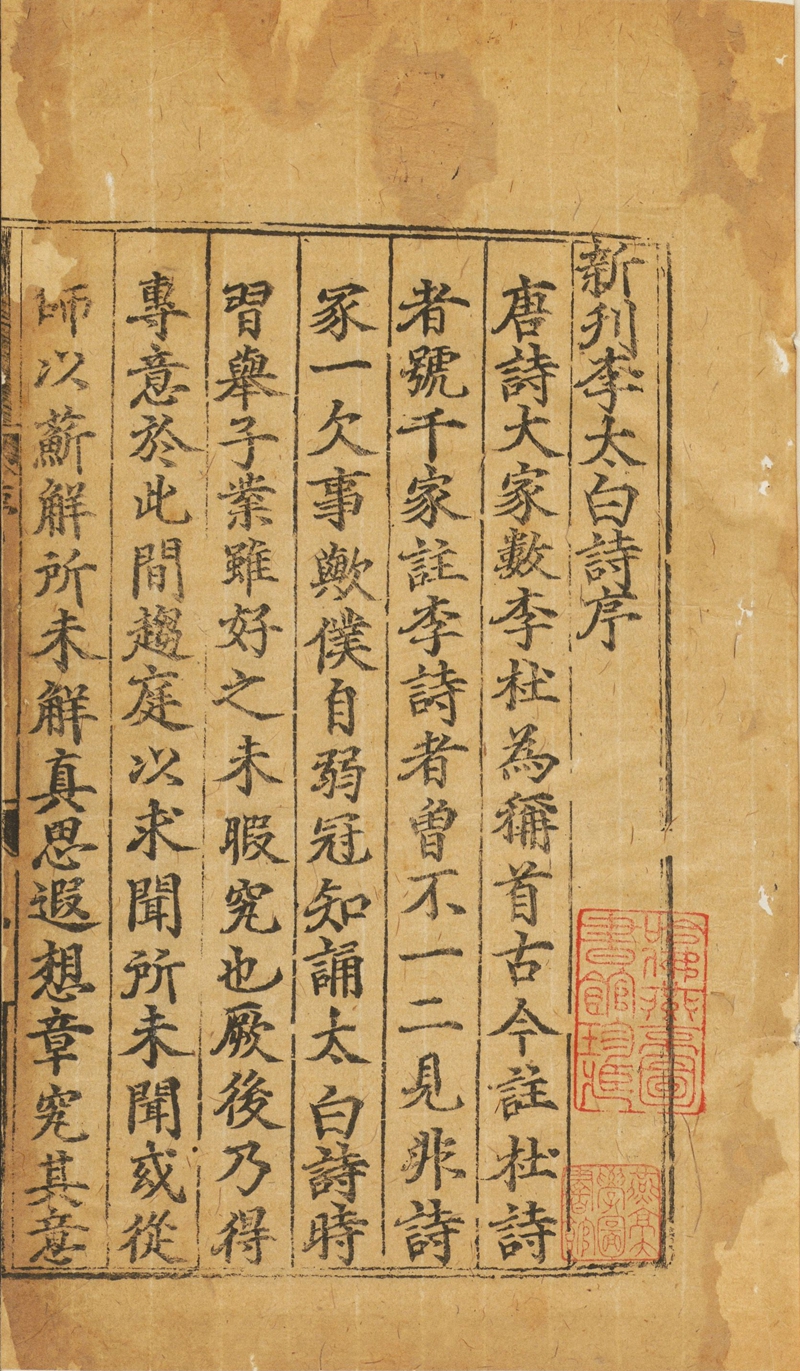 新刋李太白詩序
唐詩大家數李杜為稱首古今註杜詩
者號千家註李詩者曾不一二見非詩
冢一欠事歟僕自弱冠知誦太白詩時
習舉子業雖好之未暇究也厥後乃得
專意於此間趨庭以求聞所未聞或從
師以蘄解所未解真思遐想章究其意